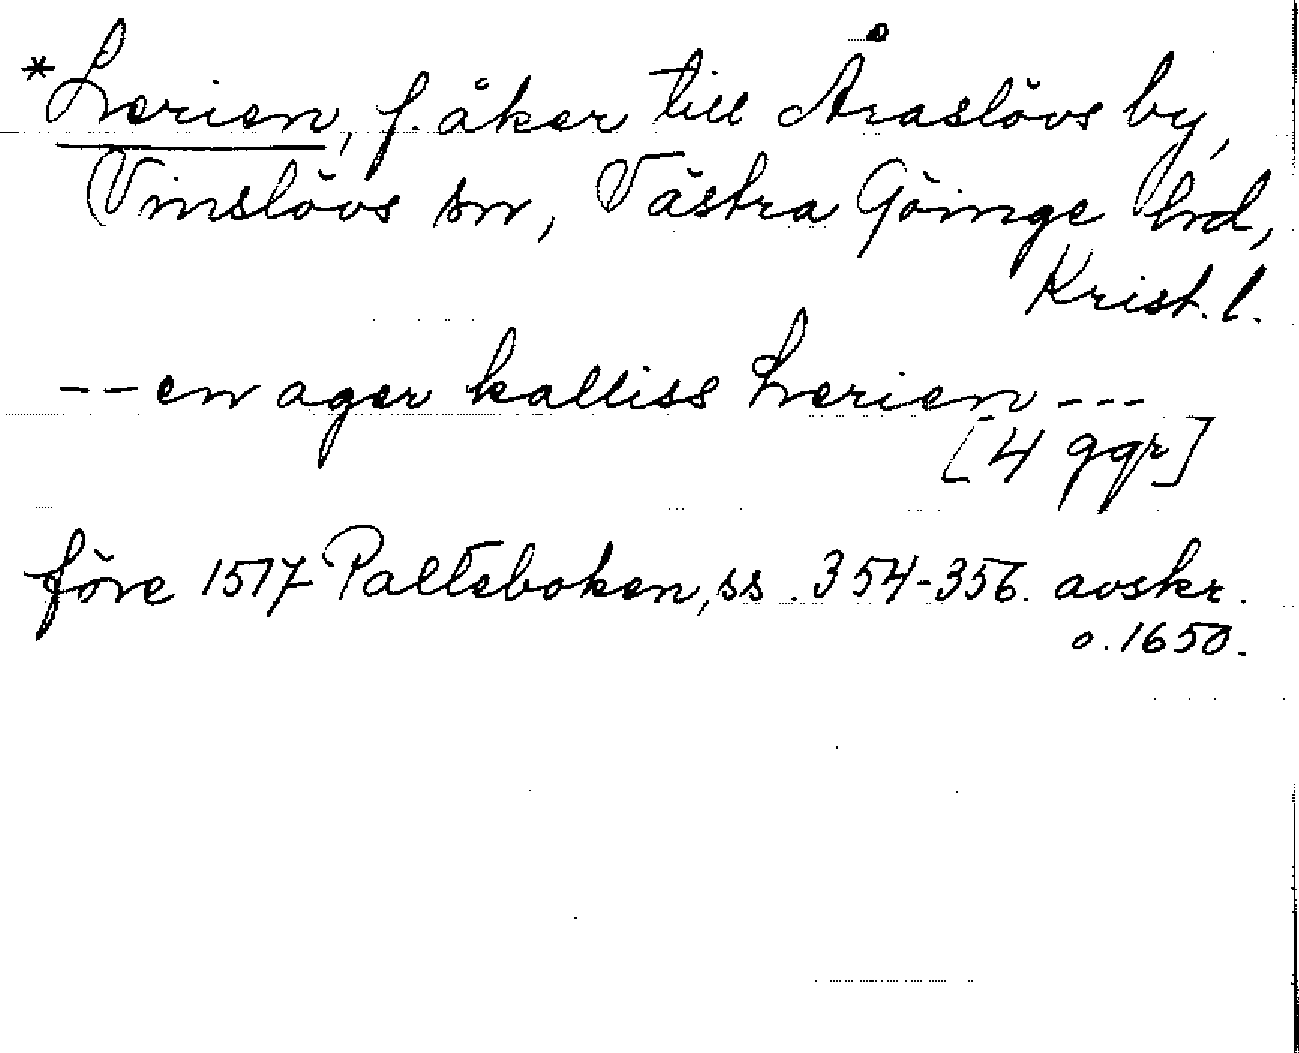 *Lerien, f. åker till Åraslövs by,
Vinslövs sn, Västra Göinge hrd,
Krist. l.
-- en ager kalliss Lerien ---
[4 ggr]
före 1517 Palteboken, ss. 354-356. avskr.
o. 1650.